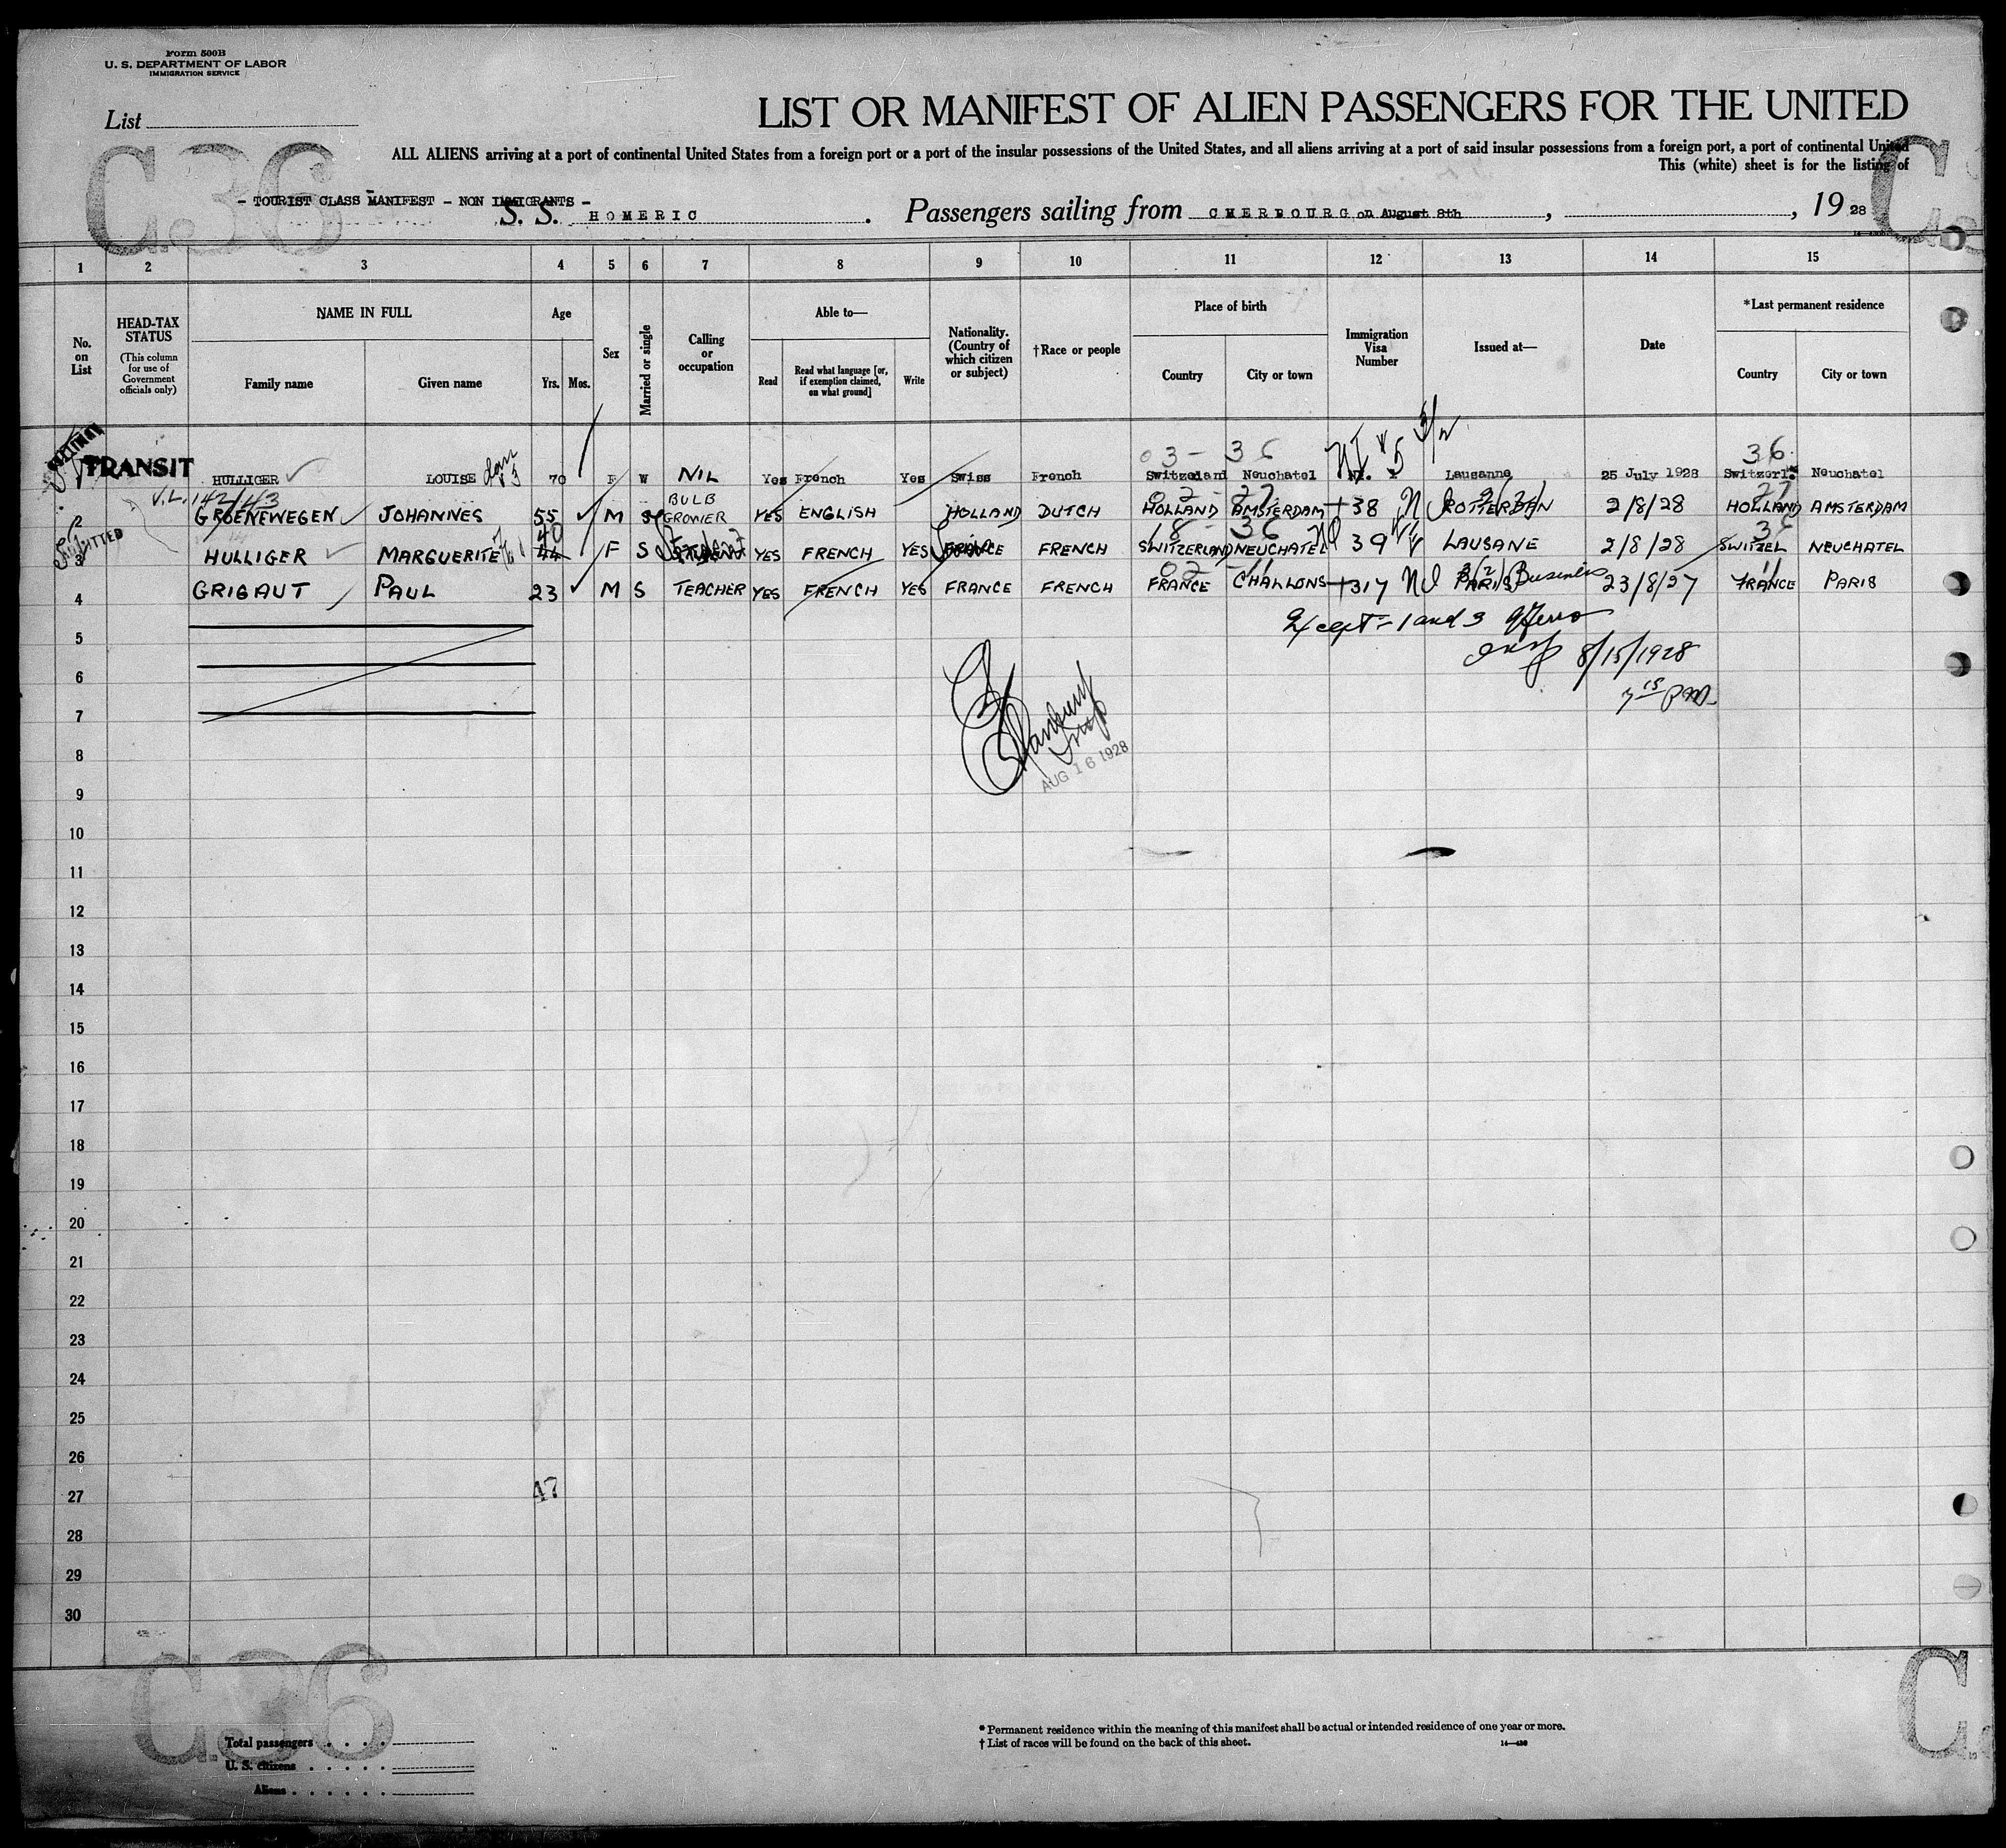 Form 500B
U. S. DEPARTMENT OF LABOR
IMMIGRATION SERVICE
List
C.36
LIST OR MANIFEST OF ALIEN PASSENGERS FOR THE UNITED
ALL ALIENS arriving at a port of continental United States from a foreign port or a port of the insular possessions of the United States, and all aliens arriving at a port of said insular possessions from a foreign port, a port of continental United
This (white) sheet is for the listing of
- TOURIST CLASS MANIFEST - NON IMMIGRANTS -
S. S. HOMERIC. Passengers sailing from CHERBOURG on August 8th, , 19 28
1 2 3 4 5 6 7 8 9 10 11 12 13 14 15
No. on List
HEAD-TAX STATUS (This column for use of Government officials only)
NAME IN FULL Family name Given name
Age Yrs. Mos.
Sex
Married or single
Calling or occupation
Able to— Read Read what language [or, if exemption claimed, on what ground] Write
Nationality. (Country of which citizen or subject)
†Race or people
Place of birth Country City or town
Immigration Visa Number
Issued at—
Date
*Last permanent residence Country City or town
03 - 36 36
TRANSIT HULLIGER LOUISE 70 F W NIL Yes French Yes Swiss French Switzeland Neuchatel Lausanne 25 July 1928 Switzerl. Neuchatel
V.L. 142/143
02 - 27 27
2 GROENEWEGEN JOHANNES 55 M S BULB GROWER YES ENGLISH HOLLAND DUTCH HOLLAND AMSTERDAM 38 ROTTERDAN 2/8/28 HOLLAND AMSTERDAM
18 - 36 36
ADMITTED
3 HULLIGER MARGUERITE 40 44 F S Student YES FRENCH YES FRANCE FRENCH SWITZERLAND NEUCHATEL 39 LAUSANE 2/8/28 SWITZEL NEUCHATEL
02 - 11 11
4 GRIGAUT PAUL 23 M S TEACHER YES FRENCH YES FRANCE FRENCH FRANCE CHALLONS 317 PARIS Business 23/8/27 FRANCE PARIS
Except - 1 and 3
5
8/15/1928
6
7 15 PM
7
AUG 16 1928
8
9
10
11
12
13
14
15
16
17
18
19
20
21
22
23
24
25
26
27
47
28
29
30
C.36
Total passengers
U. S. citizens
Aliens
* Permanent residence within the meaning of this manifest shall be actual or intended residence of one year or more.
† List of races will be found on the back of this sheet.